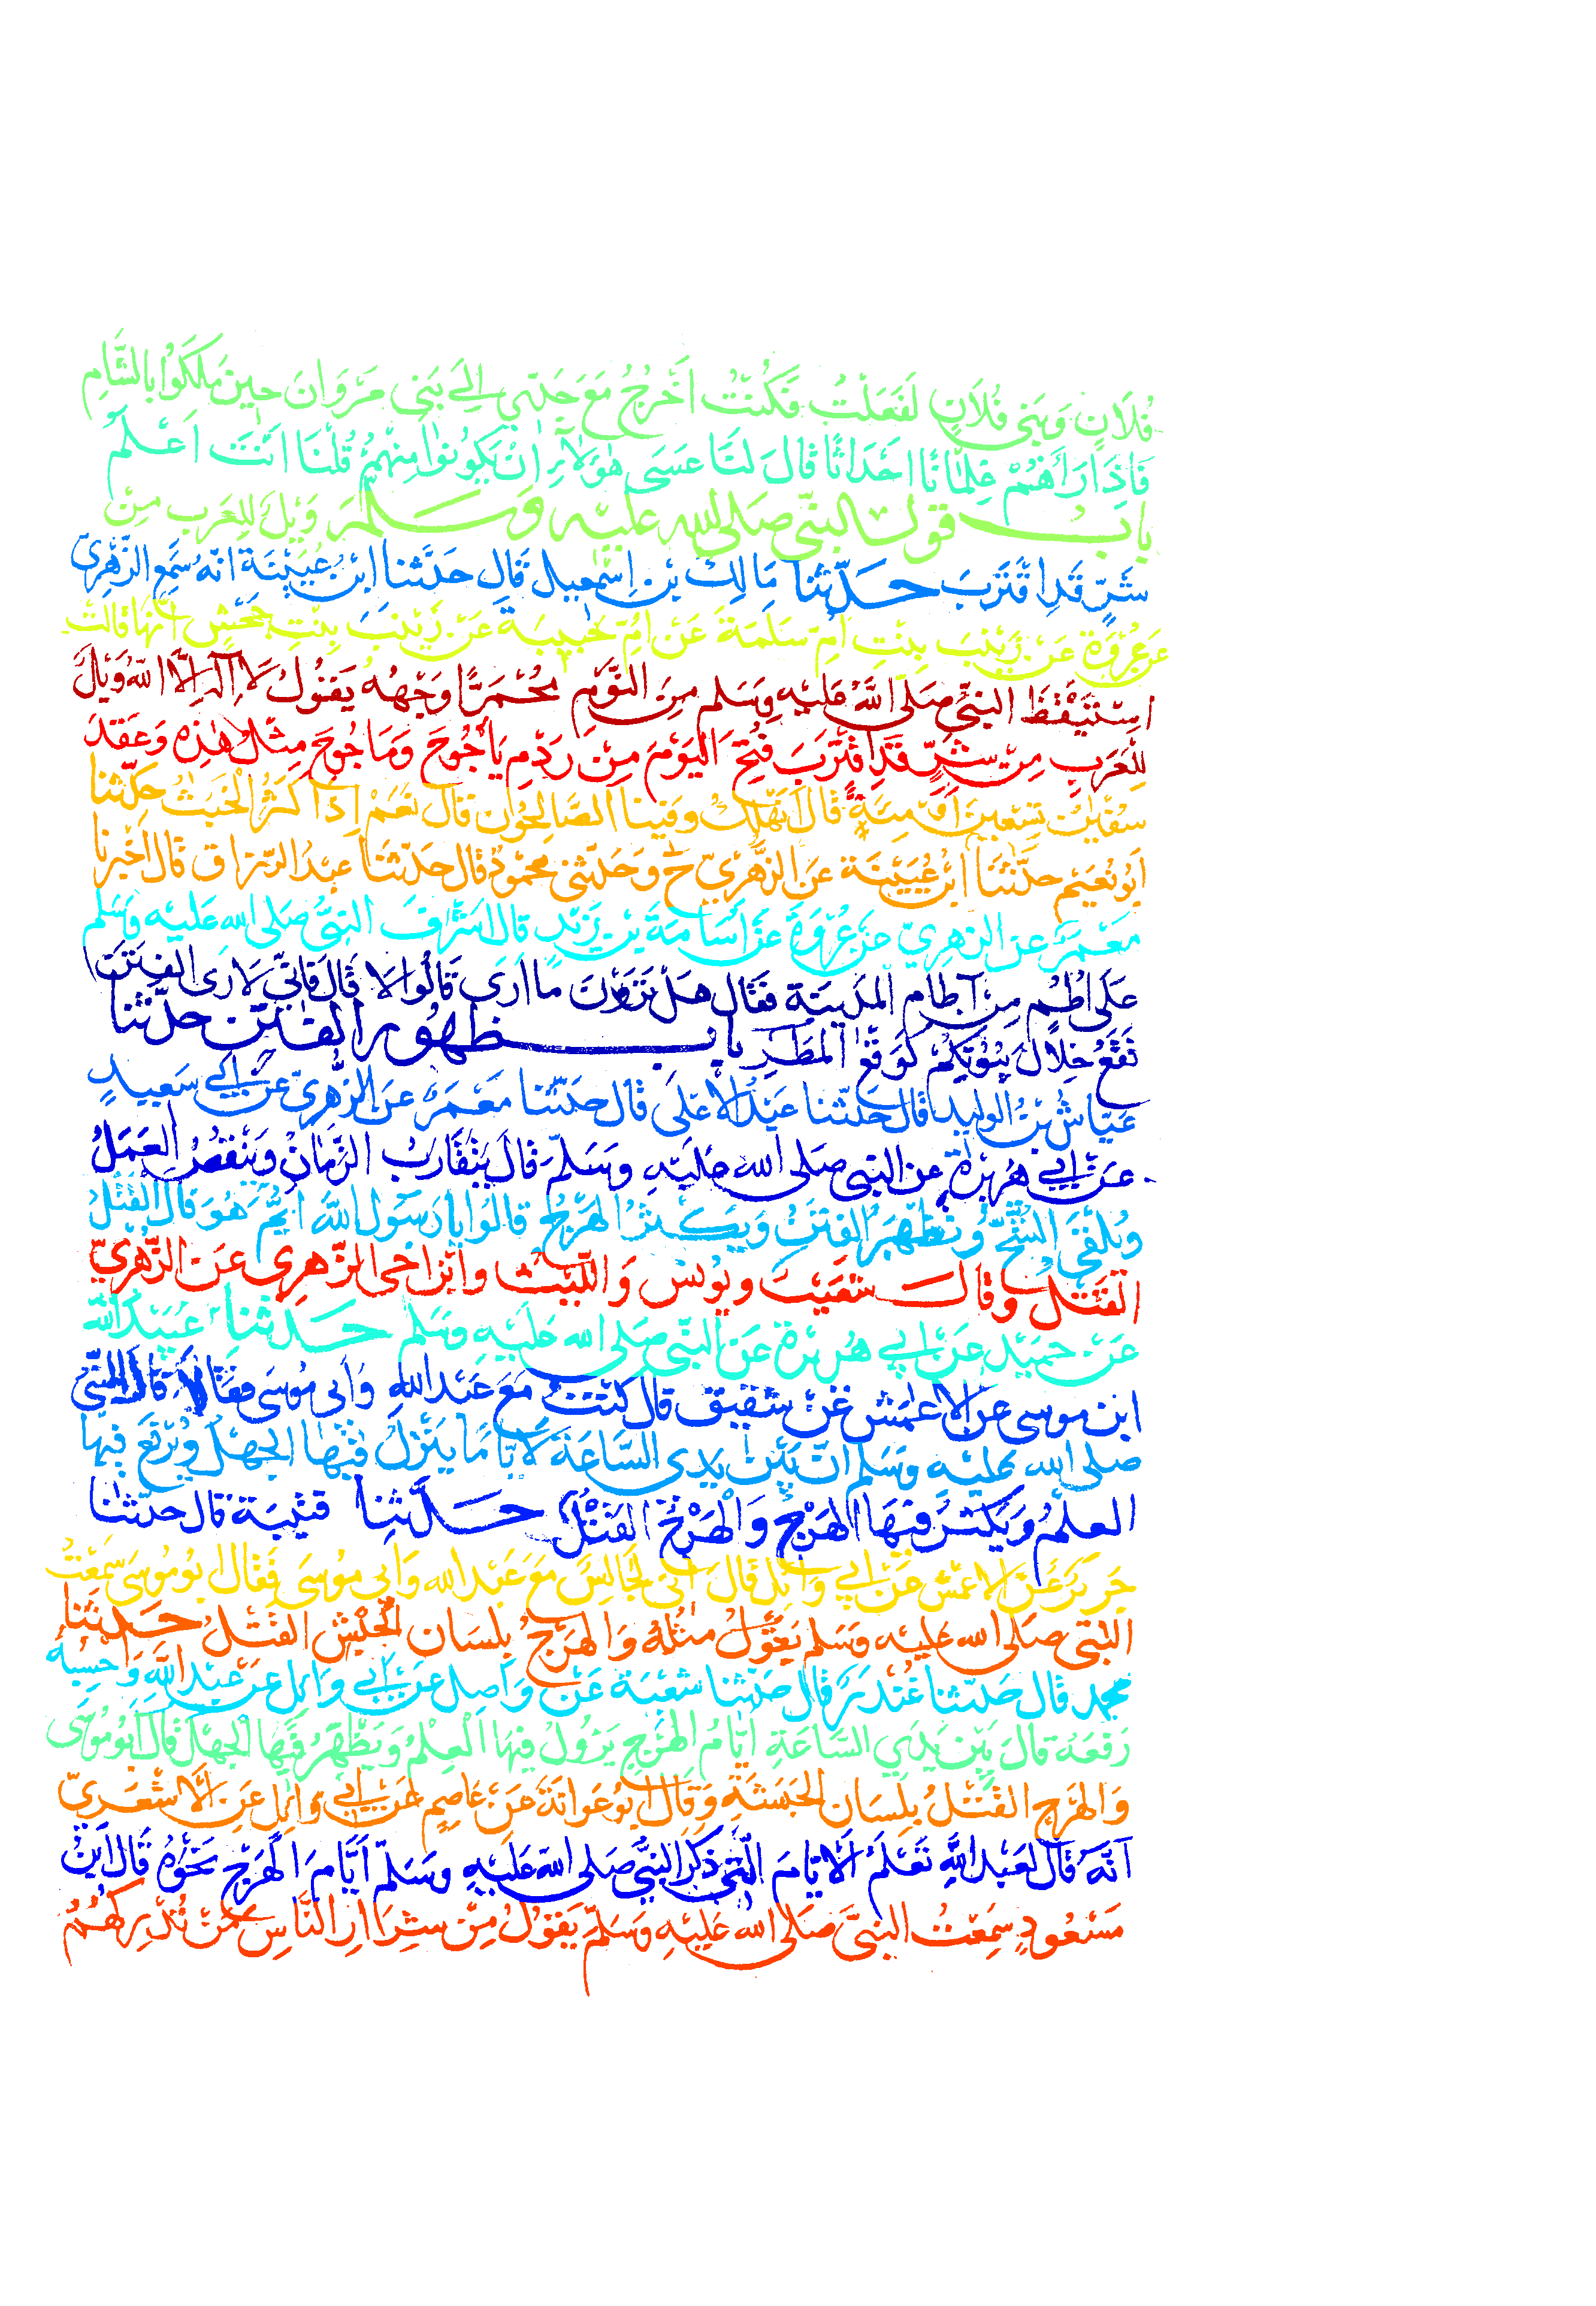 فُلَانٍ وَبَنِي فُلَانٍ لَفَعَلْتُ فَكُنْتُ اَخْرُجُ مَعَ جَدِّي اِلَى بَنِي مَرْوَانَ حِينَ مَلَكُوْا بِالشَّامِ
فَاِذَا رَاٰهُمْ غِلْمَانًا اَحْدَاثًا قَالَ لَنَا عَسَى هٰؤُلَاءِ اَنْ يَكُونُوا مِنْهُمْ قُلْنَا اَنْتَ اَعْلَمُ
بَاب قول النبيّ صَلى الله عليْه وَسَلمَ وَيْلٌ لِلعَرَب مِنْ
شَرٍّ قَدِ اقْتَرَبَ حَدّثنا مَالِكُ بْن اِسْمٰعِيل قَال حَدَّثنا ابْنُ عُيَيْنَةَ انّهُ سَمِعَ الزُّهْرِيّ
عَن عُرْوَةَ عَنْ زَيْنَبَ بِنْتِ اُمِّ سَلَمَةَ عَنْ اُمِّ حَبِيبَةَ عَنْ زَيْنَبَ بِنْتِ جَحْشٍ اَنّهَا قَالَتْ
اسْتَيْقَظَ النبيُّ صَلّى اللهُ عَلَيْهِ وَسَلم مِنَ النَّوْمِ مُحْمَرًّا وَجْهُهُ يَقُوْلُ لَا اِلٰهَ اِلَّا اللهُ وَيْلٌ
لِلْعَرَبِ مِنْ شَرٍّ قَدِ اقْتَرَبَ فُتِحَ الْيَوْمَ مِنْ رَدْمِ يَأْجُوجَ وَمَاجُوجَ مِثْلُ هٰذِهِ وَعَقَدَ
سُفْيٰنُ تِسْعِينَ اَوْ مِئَةً قَالَ اَنَهْلِكُ وَفِينا الصَّالِحُوْن قَالَ نَعَمْ اِذَا كَثُرَ الْخَبَثُ حَدّثنا
اَبُو نُعَيْمٍ حَدّثَنَا ابْنُ عُيَيْنَةَ عَنِ الزُّهْرِيّ ح وَحَدّثني مَحْمُوْدٌ قَال حَدّثَنَا عبْدُ الرّزاق قَال اَخْبرنا
مَعْمَرٌ عَن الزهريّ عَنْ عُرْوَةَ عَنْ اُسَامَةَ بْنِ زَيْدٍ قَال اَشْرَفَ النبِيُّ صَلى الله عَليْه وَسَلم
عَلَى اُطُمٍ مِنْ آطَامِ المَدِينَةِ فَقَال هَلْ تَرَوْنَ مَا اَرَى قَالُوا لا قَال فَاِنِّي لَاَرَى الفِتَنَ
تَقَعُ خِلَالَ بُيُوْتِكُمْ كَوَقْعِ المَطَرِ بَاب ظهُور الفتَن حدّثنا
عَيّاشُ بْنُ الوليد قَال حَدّثنا عَبْدُ الاعْلَى قَال حَدّثَنا مَعْمَرٌ عَنِ الزُّهْرِيّ عَنْ سَعيدٍ
عَنْ اَبِي هُرَيْرَةَ عَن النبي صَلى الله عَلَيْهِ وَسَلمَ قَال يَتَقَارَبُ الزَّمَانُ وَيَنْقُصُ العَمَلُ
وَيُلْقَى الشُّحُّ وَتَظْهَرُ الفِتَنُ وَيَكْثرُ الهَرْجُ قَالُوا يَا رَسُول الله اَيُّمَ هُوَ قَال القَتْلُ
القَتْلُ وَقَالَ شُعَيْبٌ وَيُونُسُ وَاللّيْثُ وَابْنُ اَخِي الزّهرِي عَن الزُّهْرِيّ
عَنْ حُمَيْدٍ عَنْ اَبي هُريْرَة عَن النّبي صَلى الله عَلَيْهِ وَسَلم حَدّثنا عُبَيْدُ الله
ابن موسى عن الاعْمَشِ عَنْ شَقِيق قَال كُنْتُ مَعَ عَبْد الله وَاَبى مُوْسَى فَقَالَا قَال النّبيُّ
صَلى الله عليْه وَسَلم اِنّ بَيْنَ يَدي السَّاعَة لَاَيّامًا يَنْزلُ فيْهَا الجَهْلُ وَيُرْفَعُ فِيهَا
العلْمُ وَيَكْثرُ فيهَا الهَرْجُ وَالهَرْجُ القَتْلُ حَدّثنا قُتَيْبَة قَال حَدّثَنا
جَرِيرٌ عَن الاَعْمش عَنْ اَبي وَائل قَال اِنّي لَجَالِسٌ مَعَ عَبْد الله وَاَبي مُوسَى فَقَالَ اَبُو مُوْسَى سَمِعْتُ
النبّي صَلى الله عليه وَسَلم يَقُوْلُ مثْلَهُ وَالهَرْجُ بلسَان الْحَبْشِ القَتْلُ حَدّثنا
محمد قَال حَدّثنا غُنْدَرٌ قَال حَدّثنا شُعْبَةُ عَنْ وَاصِل عَنْ اَبي وَائِل عَنْ عَبْد الله وَاَحْسِبُهُ
رَفَعَهُ قَالَ بَيْنَ يَدَيِ السَّاعَةِ اَيّامُ الهَرْجِ يَزُولُ فِيهَا الْعِلْمُ وَيَظْهَرُ فِيهَا الجَهْلُ قَال اَبُو مُوْسَى
وَالهَرْج القَتْلُ بلِسَانِ الحَبَشَةِ وَقَال اَبُو عَوَانَةَ عَنْ عَاصِمٍ عَنْ اَبي وَائِل عَنِ الْاَشْعَرِيّ
اَنّهُ قَالَ لعَبْد اللهِ تَعْلَمُ الاَيّامَ الّتي ذكَرَ النبيُّ صَلى اللهُ عَليْهِ وَسَلمَ اَيّامَ الهَرْجِ نَحْوَهُ قَال ابْنُ
مَسْعُودٍ سَمِعْتُ النبيَّ صَلى الله عَليْهِ وَسَلمَ يَقُوْلُ مِنْ شِرَارِ النَّاسِ مَنْ تُدْرِكهُمُ